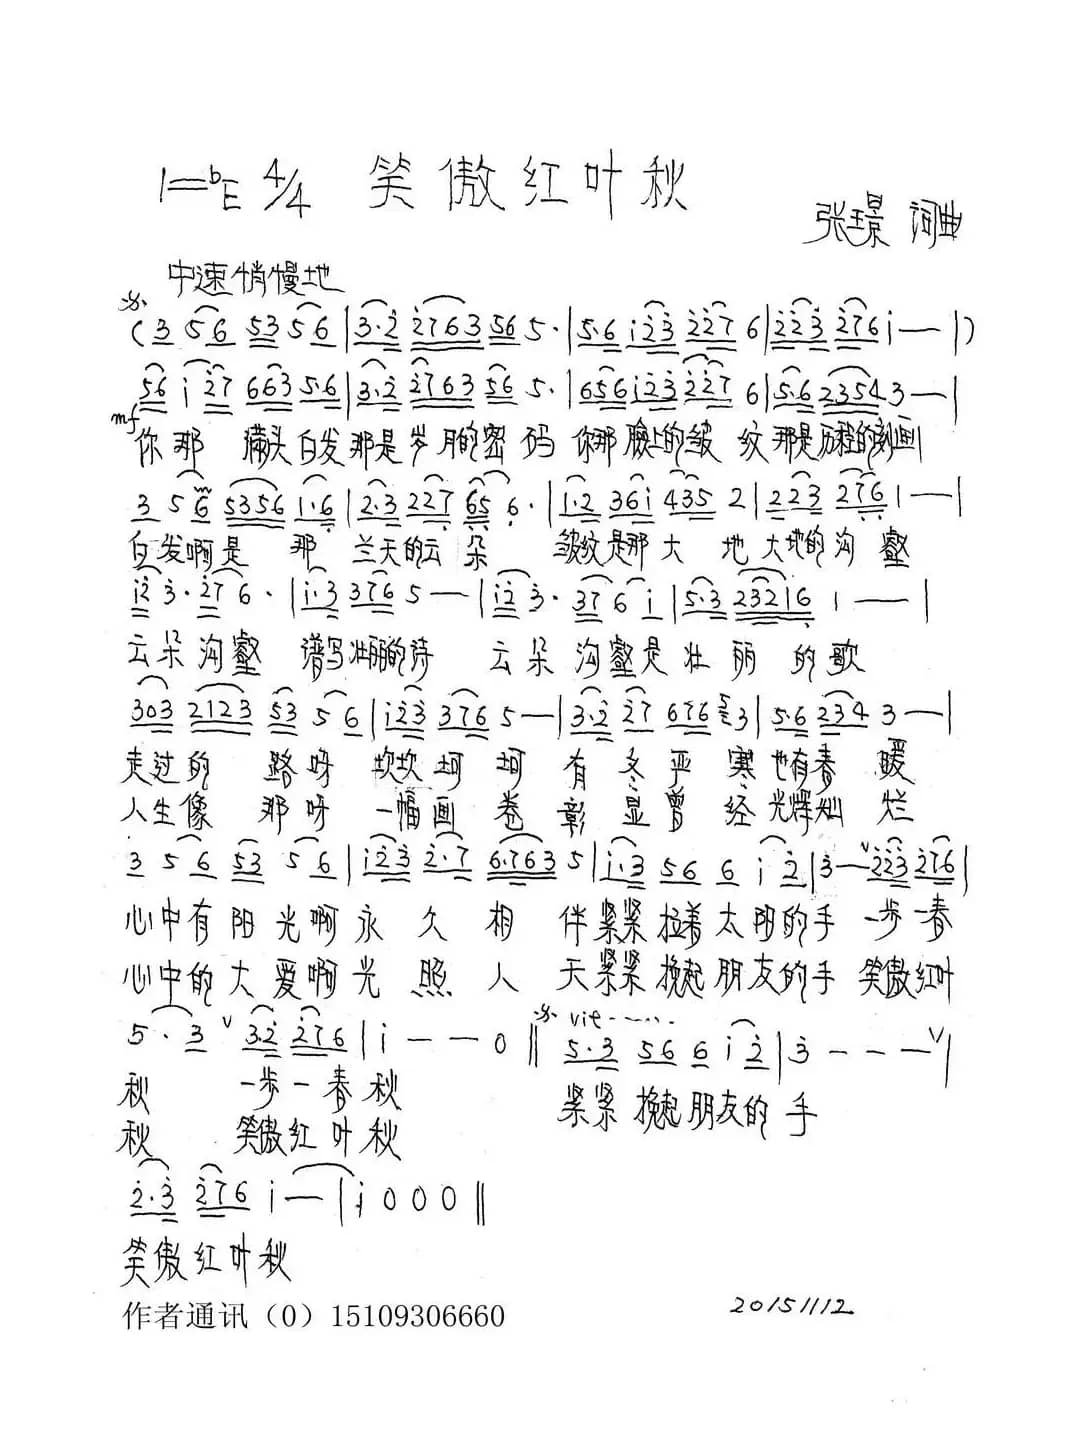 1=bE 4/4 笑傲红叶秋
张璟 词曲
中速悄慢地
(3 56 53 56|3·2 2763 56 5·|5·6 i23 2276|223 276 i—|)
56 i 27 663 5·6|3·2 2763 56 5·|656i23227 6|5·6 2354 3—|
mf
你那 满头白发那是岁月的密码 你那脸上的皱纹那是历程的刻画
3 5 6 5356 1·6|2·3 227 65 6·|1·2 36i 435 2|223 276 1—|
白发啊是 那 兰天的云朵 皱纹是那大 地大地的沟壑
i2 3·27 6·|i·3 376 5—|i2 3·37 6 i|5·3 23216 1——|
云朵沟壑 谱写壮丽的诗 云朵沟壑是壮丽的歌
303 2123 53 5 6|i23 376 5—|3·2 27 676 53|5·6 234 3—|
走过的 路呀 坎坎坷坷有冬严寒也有春暖
人生像 那呀 一幅画卷彰显曾经光辉灿烂
3 56 53 56|i23 2·7 6·763 5|i·3 56 6 i2|3—v223 276|
心中有阳光啊永久相伴紧紧拉着太阳的手 一步一春
心中的大爱啊光照人天紧紧挽起朋友的手 笑傲红叶
5·3 v 3·2 276|i——0‖ 5·3 56 6 i2|3———v|
vit······
秋 一步一春秋
紧紧挽起朋友的手
秋 笑傲红叶秋
2·3 276 i—|i 0 0 0‖
笑傲红叶秋
作者通讯（0）15109306660
20151112